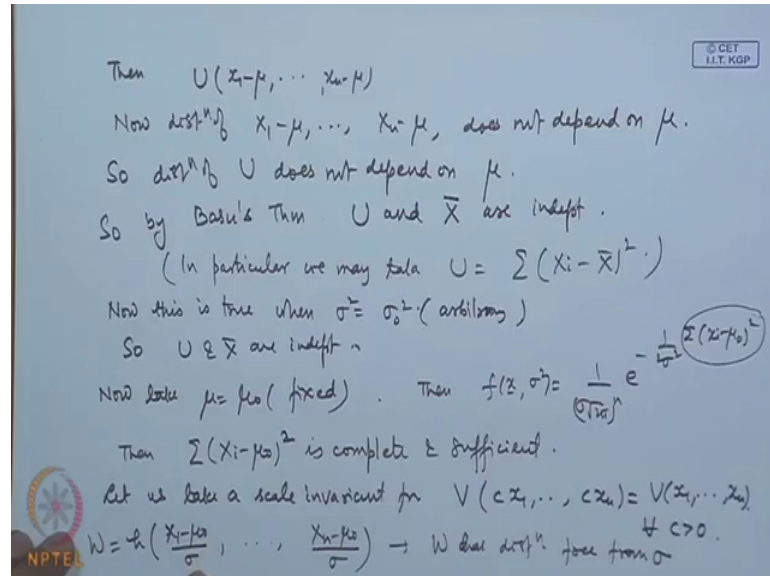 © CET
I.I.T. KGP
Then U(x₁-μ, ⋯, xₙ-μ)
Now distⁿ of X₁-μ, ..., Xₙ-μ, does not depend on μ.
So distⁿ of U does not depend on μ.
So by Basu's Thm. U and X̄ are indept.
(In particular we may take U = Σ(Xi-X̄)².)
Now this is true when σ² = σ₀² (arbitrary)
So U & X̄ are indept.
Now take μ = μ₀ (fixed). Then f(x, σ²) = 1/(σ√2π)ⁿ e^{-1/2σ² Σ(xi-μ₀)²}
Then Σ(Xi-μ₀)² is complete & sufficient.
Let us take a scale invariant fn V(cx₁, .., cxₙ) = V(x₁, ..., xₙ)
∀ c>0.
W = h((X₁-μ₀)/σ, ⋯, (Xₙ-μ₀)/σ) → W has distⁿ free from σ
NPTEL